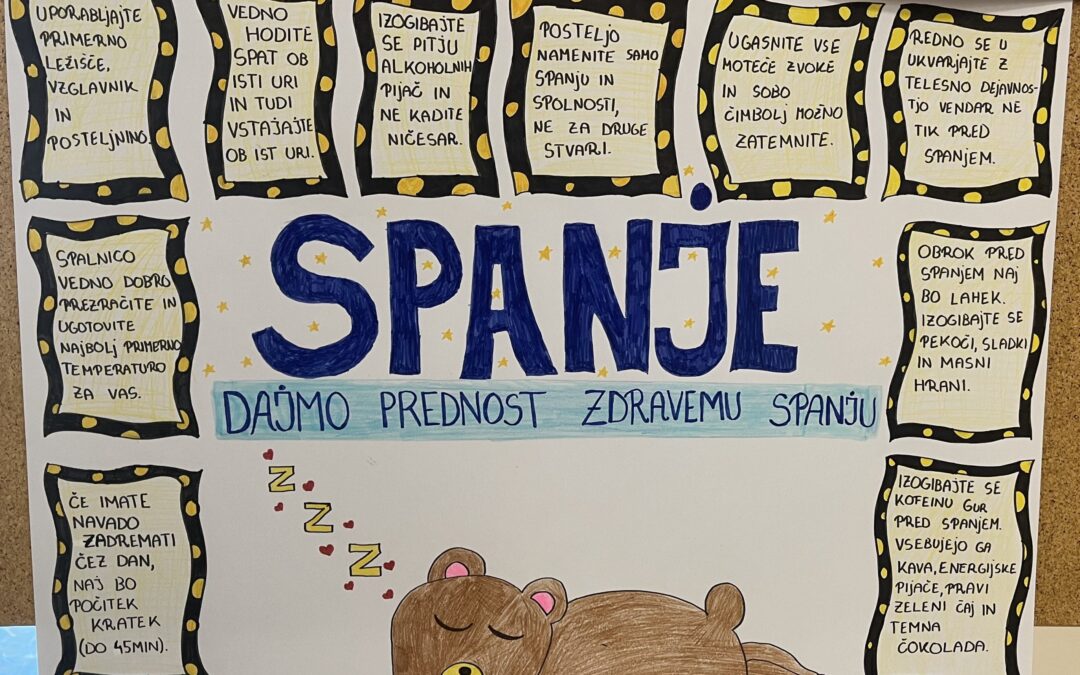 UPORABLJAJTE
PRIMERNO
LEŽIŠČE,
VZGLAVNIK
IN
POSTELJNINO.
VEDNO
HODITE
SPAT OB
ISTI URI
IN TUDI
VSTAJAJTE
OB IST URI.
IZOGIBAJTE
SE PITJU
ALKOHOLNIH
PIJAČ IN
NE KADITE
NIČESAR.
POSTELJO
NAMENITE SAMO
SPANJU IN
SPOLNOSTI,
NE ZA DRUGE
STVARI.
UGASNITE VSE
MOTEČE ZVOKE
IN SOBO
ČIMBOLJ MOŽNO
ZATEMNITE.
REDNO SE U
UKVARJAJTE Z
TELESNO DEJAVNOS-
TJO VENDAR NE
TIK PRED
SPANJEM.
SPANJE
DAJMO PREDNOST ZDRAVEMU SPANJU
SPALNICO
VEDNO DOBRO
PREZRAČITE IN
UGOTOVITE
NAJBOLJ PRIMERNO
TEMPERATURO
ZA VAS.
OBROK PRED
SPANJEM NAJ
BO LAHEK.
IZOGIBAJTE SE
PEKOČI, SLADKI
IN MASNI
HRANI.
ČE IMATE
NAVADO
ZADREMATI
ČEZ DAN,
NAJ BO
POČITEK
KRATEK
(DO 45MIN).
Z
Z
Z
IZOGIBAJTE SE
KOFEINU 6UR
PRED SPANJEM.
VSEBUJEJO GA
KAVA, ENERGIJSKE
PIJAČE, PRAVI
ZELENI ČAJ IN
TEMNA
ČOKOLADA.